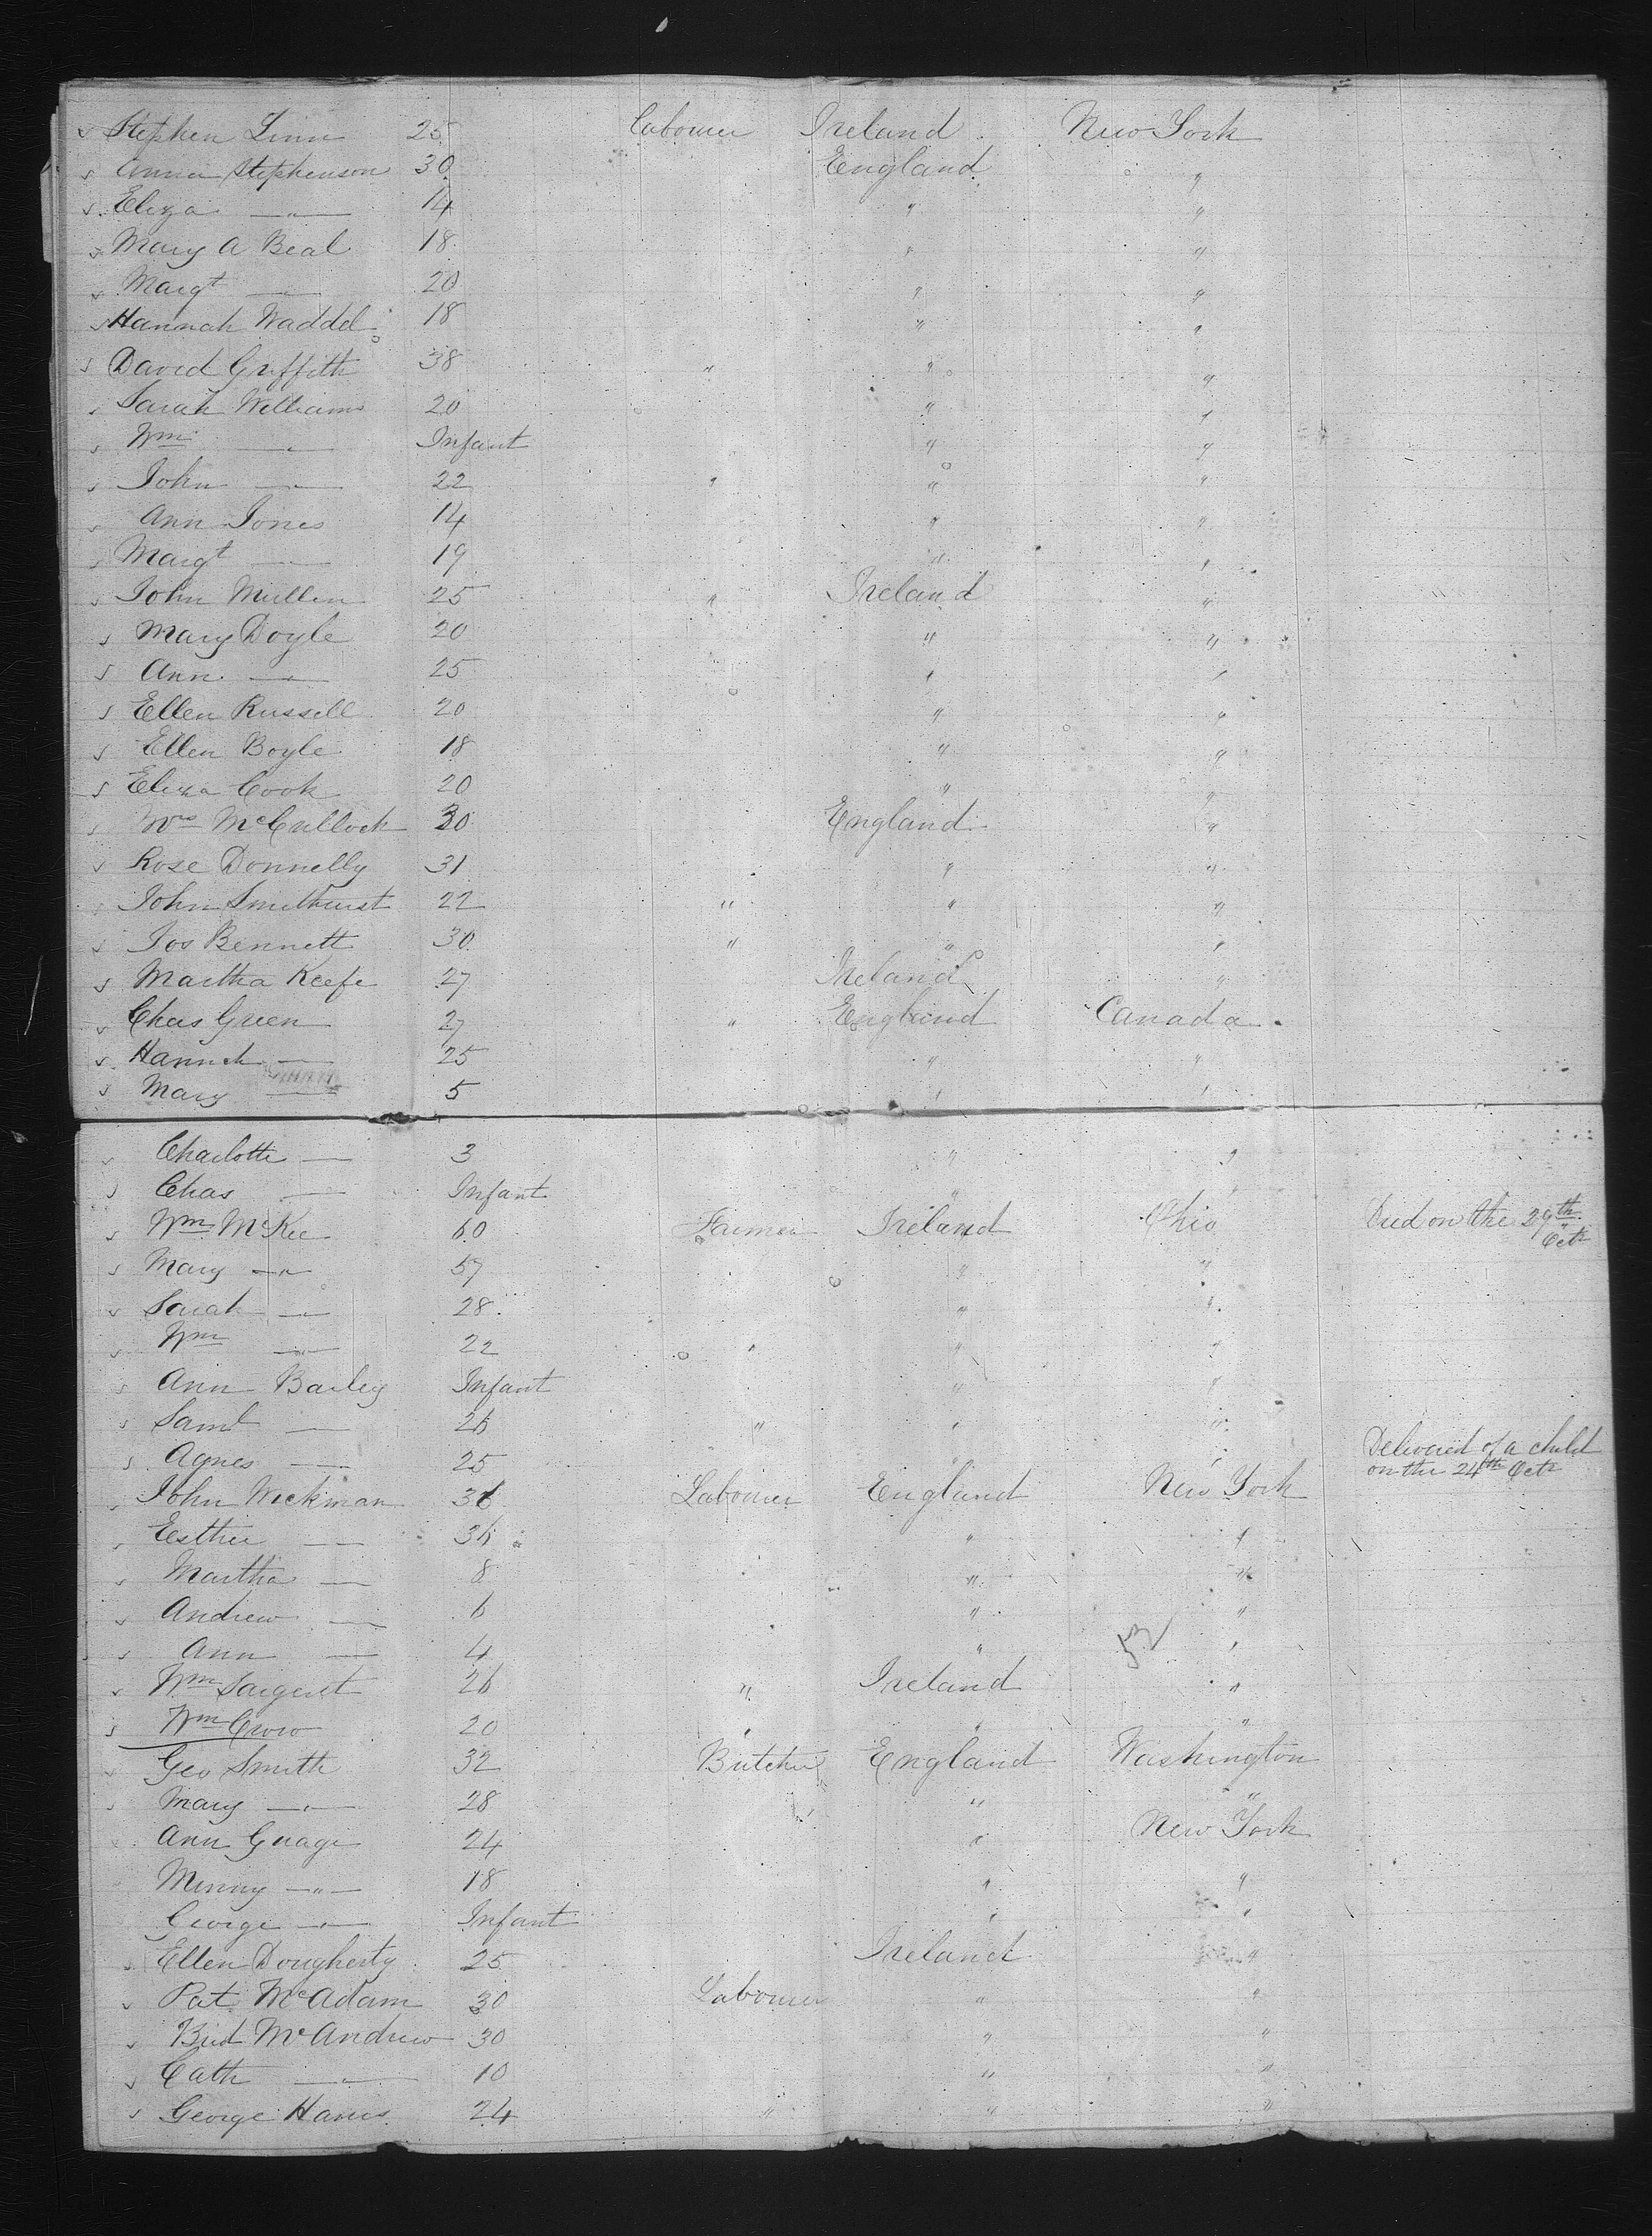 Stephen Linn 25 Labourer Ireland New York
Anna Stephenson 30 England "
Eliza —"— 14 " "
Mary A Beal 18 " "
Margt —"— 20 " "
Hannah Waddel 18 " "
David Griffith 38 " " "
Sarah Williams 20 " "
Wm —"— Infant " "
John —"— 22 " " "
Ann Jones 14 " "
Margt —"— 19 " "
John Mullen 25 " Ireland "
Mary Doyle 20 " "
Ann —"— 25 " "
Ellen Russell 20 " "
Ellen Boyle 18 " "
Eliza Cook 20 " "
Mrs McCulloch 30 England "
Rose Donnelly 31 " "
John Smithurst 22 " " "
Jos Bennett 30 " " "
Martha Keefe 27 Ireland "
Chas Green 27 " England Canada
Hannah —"— 25 " "
Mary —"— 5 " "
Charlotte — 3 " "
Chas — Infant " "
Wm McKee 60 Farmer Ireland Ohio Died on the 29th Octr
Mary —"— 57 " "
Sarah —"— 28 " "
Wm —"— 22 " " "
Ann Bailey Infant " "
Saml — 26 " " "
Agnes — 25 " " Delivered of a child
on the 24th Octr
John Wickman 36 Labourer England New York
Esther — 36 " "
Martha — 8 " "
Andrew — 6 " "
Ann — 4 " "
Wm Sargent 26 " Ireland "
Wm Crow 20 " " "
Geo Smith 32 Butcher England Washington
Mary —"— 28 " "
Ann Guage 24 " New York
Minny —"— 18 " "
George —"— Infant " "
Ellen Dougherty 25 Ireland "
Pat McAdam 30 Labourer " "
Brid McAndrew 30 " "
Cath —"— 10 " "
George Harris 24 " " "